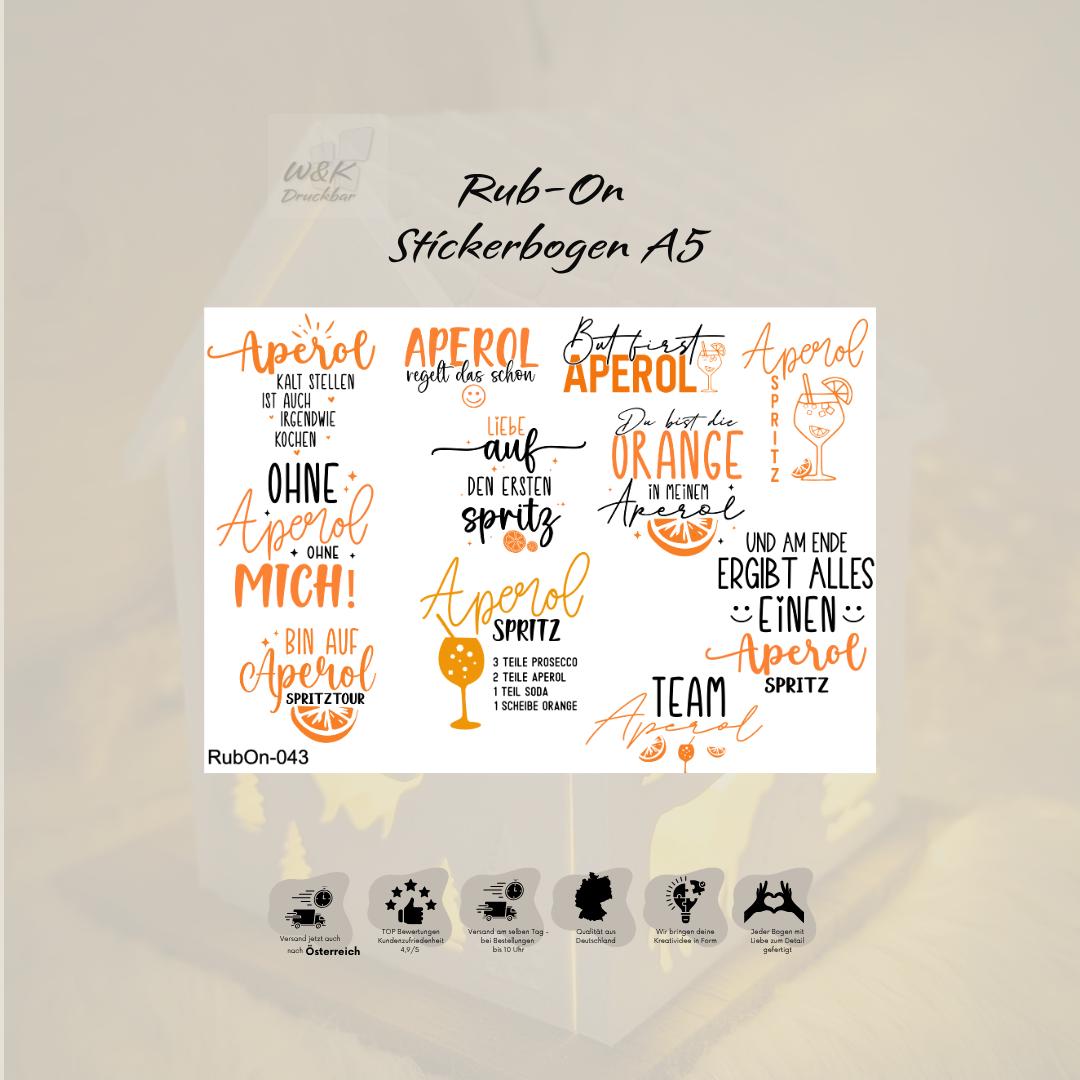 W&K
Druckbar
Rub-On
Stickerbogen A5
Aperol
KALT STELLEN
IST AUCH
IRGENDWIE
KOCHEN
APEROL
regelt das schon
But first
APEROL
Aperol
SPRITZ
LIEBE
auf
DEN ERSTEN
spritz
Du bist die
ORANGE
IN MEINEM
Aperol
OHNE
Aperol
OHNE
MICH!
UND AM ENDE
ERGIBT ALLES
EINEN
Aperol
SPRITZ
Aperol
SPRITZ
3 TEILE PROSECCO
2 TEILE APEROL
1 TEIL SODA
1 SCHEIBE ORANGE
BIN AUF
Aperol
SPRITZTOUR
TEAM
Aperol
RubOn-043
Versand jetzt auch
nach Österreich
TOP Bewertungen
Kundenzufriedenheit
4,9/5
Versand am selben Tag -
bei Bestellungen
bis 10 Uhr
Qualität aus
Deutschland
Wir bringen deine
Kreatividee in Form
Jeder Bogen mit
Liebe zum Detail
gefertigt